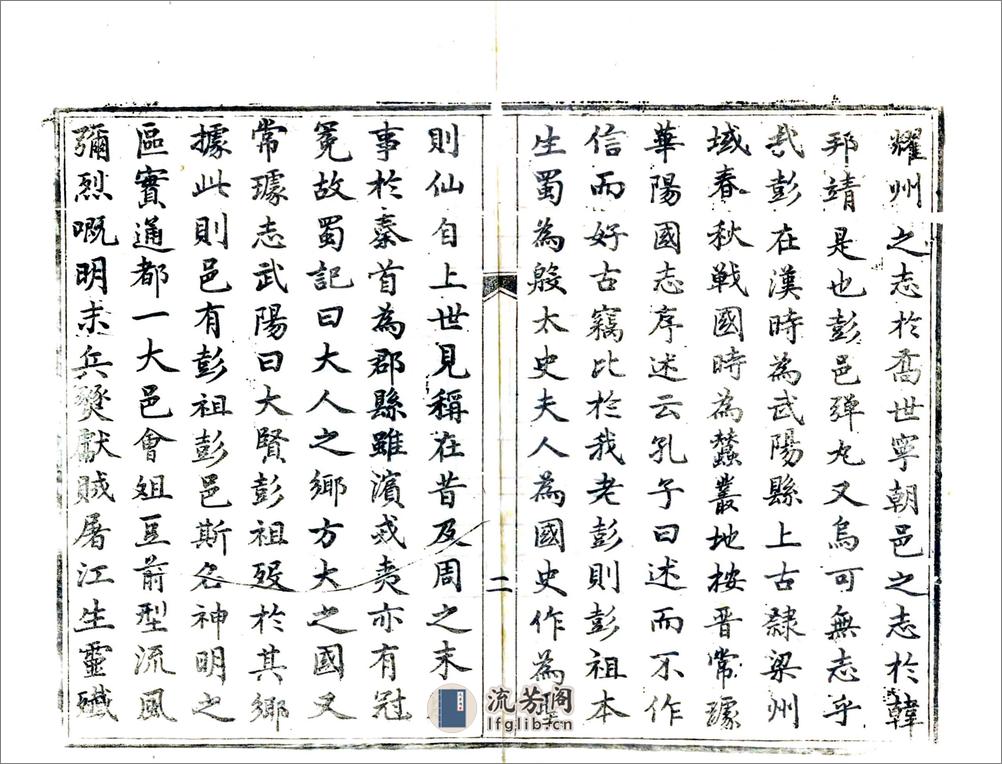 耀州之志於喬世寧朝邑之志於韓
邦靖是也彭邑彈丸又烏可無志乎
哉彭在漢時為武陽縣上古隸梁州
域春秋戰國時為蠶叢地按晉常璩
華陽國志序述云孔子曰述而不作
信而好古竊比於我老彭則彭祖本
生蜀為殷太史夫人為國史作為
二
則仙自上世見稱在昔及周之末
事於秦首為郡縣雖濱戎夷亦有冠
冕故蜀記曰大人之鄉方大之國又
常璩志武陽曰大賢彭祖歿於其鄉
據此則邑有彭祖彭邑斯名神明之
區實通都一大邑會俎豆前型流風
彌烈嘅明末兵燹獻賊屠江生靈殲
流芳阁
lfglib.cn